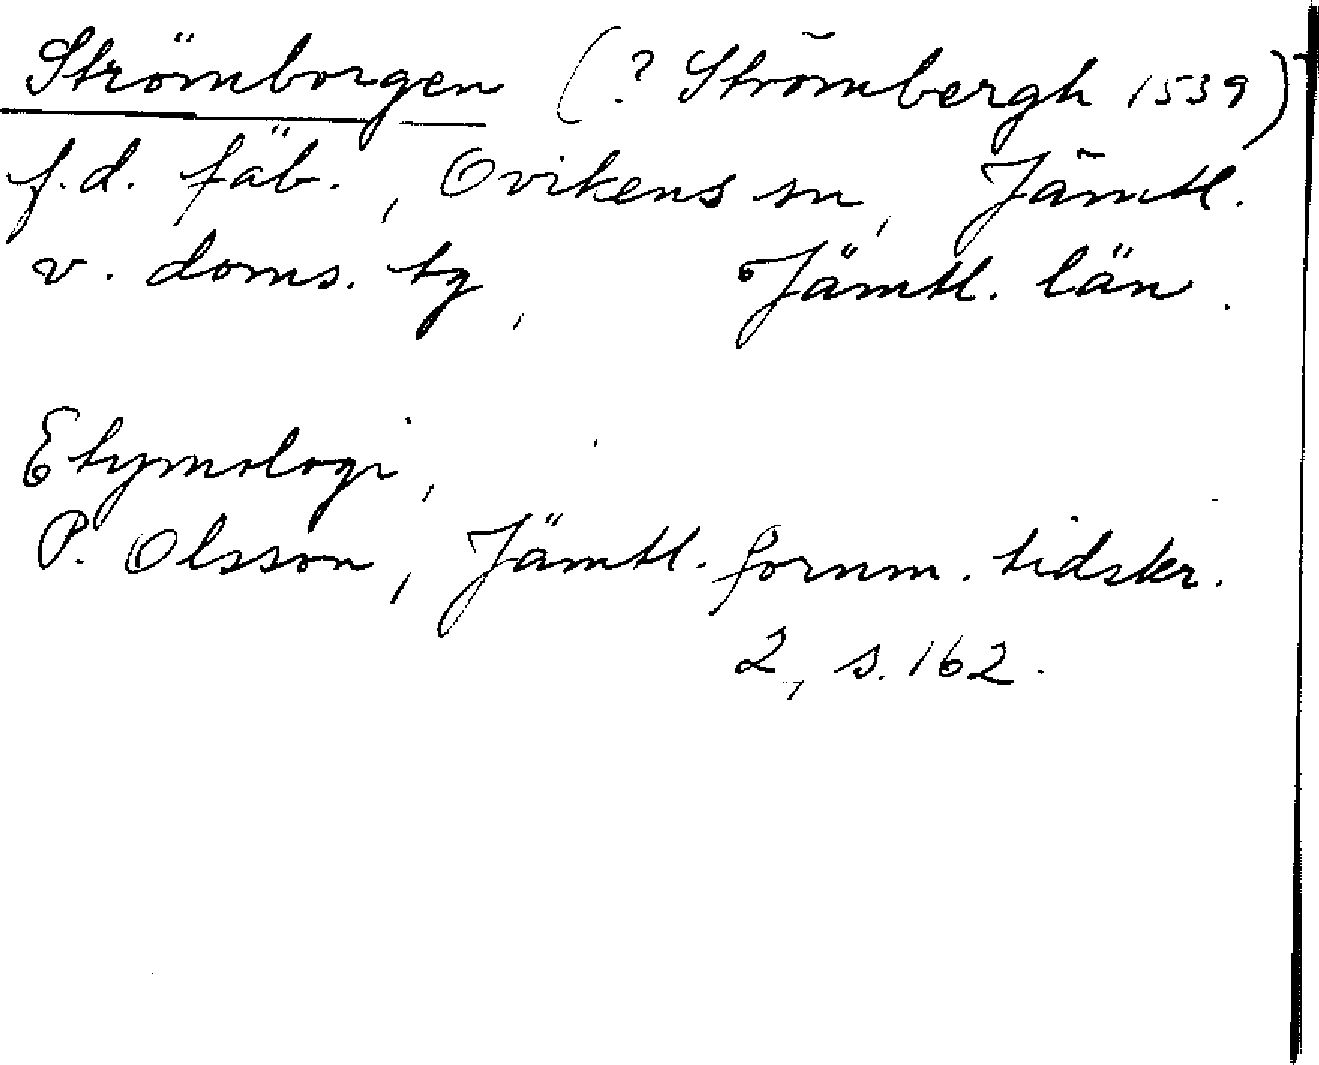 Strömborgen (? Strömbergh 1539)
f.d. fäb., Ovikens sn, Jämtl.
v. doms. tg, Jämtl. län.
Etymologi,
P. Olsson, Jämtl. fornm. tidskr.
2, s. 162.